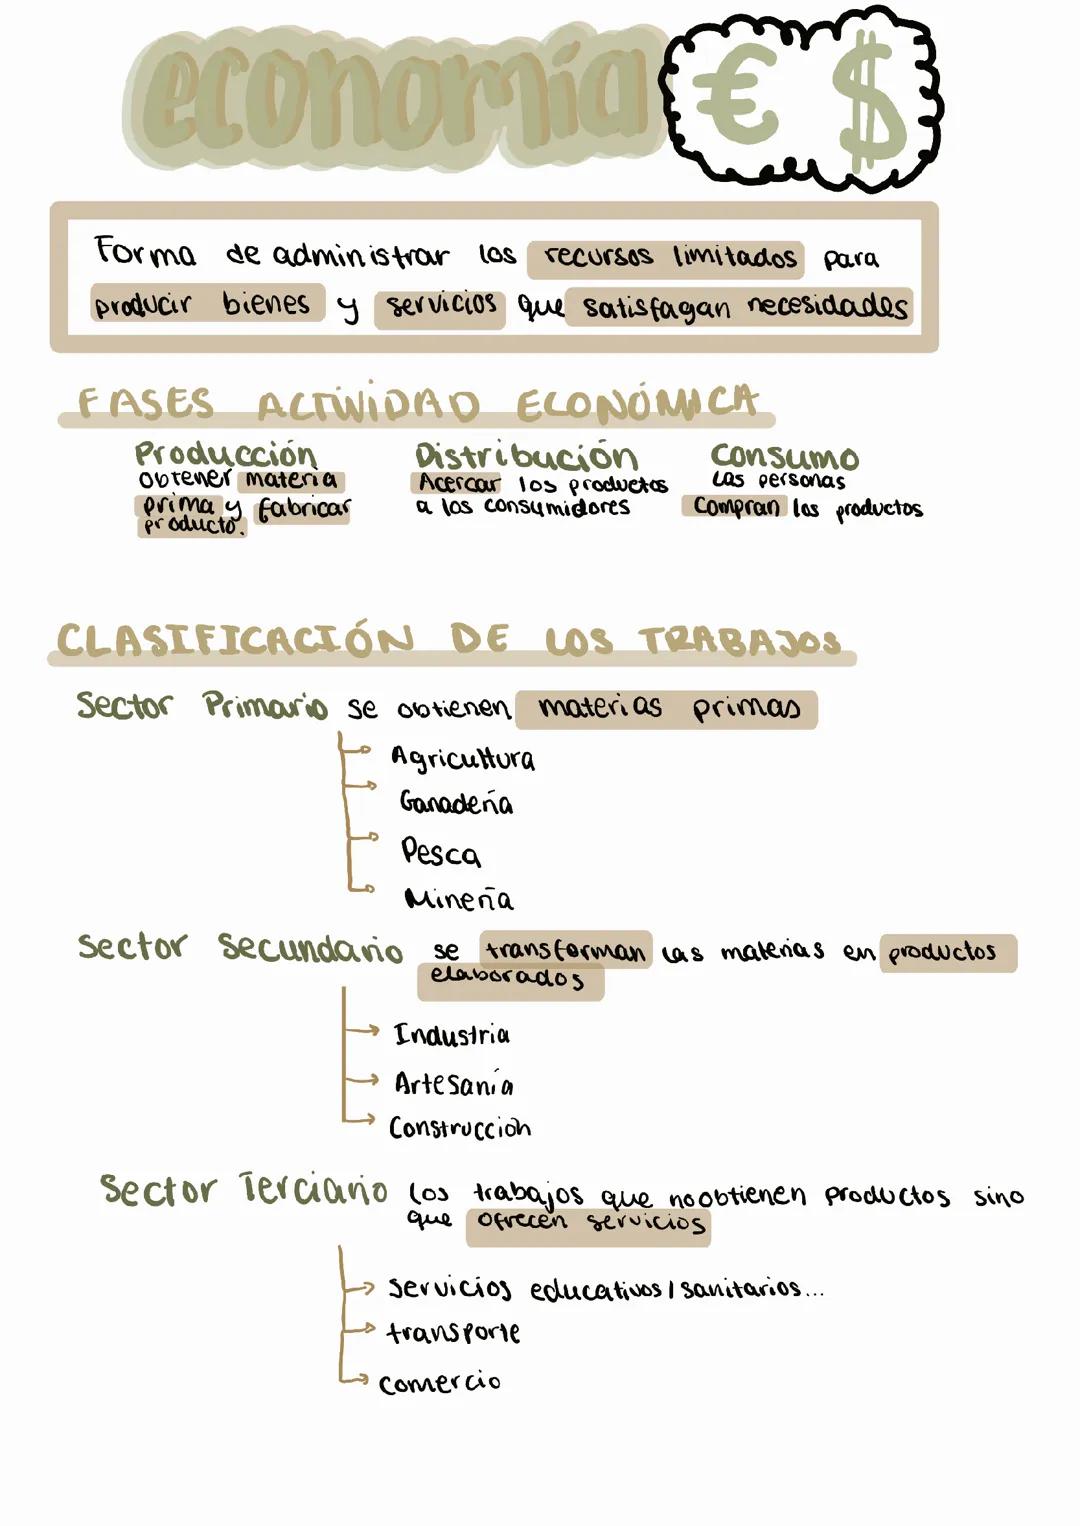 economía € $
Forma de administrar los recursos limitados para
producir bienes y servicios que satisfagan necesidades
FASES ACTIVIDAD ECONÓMICA
Producción
obtener materia
prima y fabricar
producto.
Distribución
Acercar los productos
a los consumidores
Consumo
Las personas
Compran los productos
CLASIFICACIÓN DE LOS TRABAJOS
Sector Primario se obtienen materias primas
Agricultura
Ganadería
Pesca
Minería
Sector Secundario se transforman las materias en productos
elaborados
Industria
Artesanía
Construcción
Sector Terciario los trabajos que no obtienen productos sino
que ofrecen servicios
servicios educativos / sanitarios...
transporte
comercio